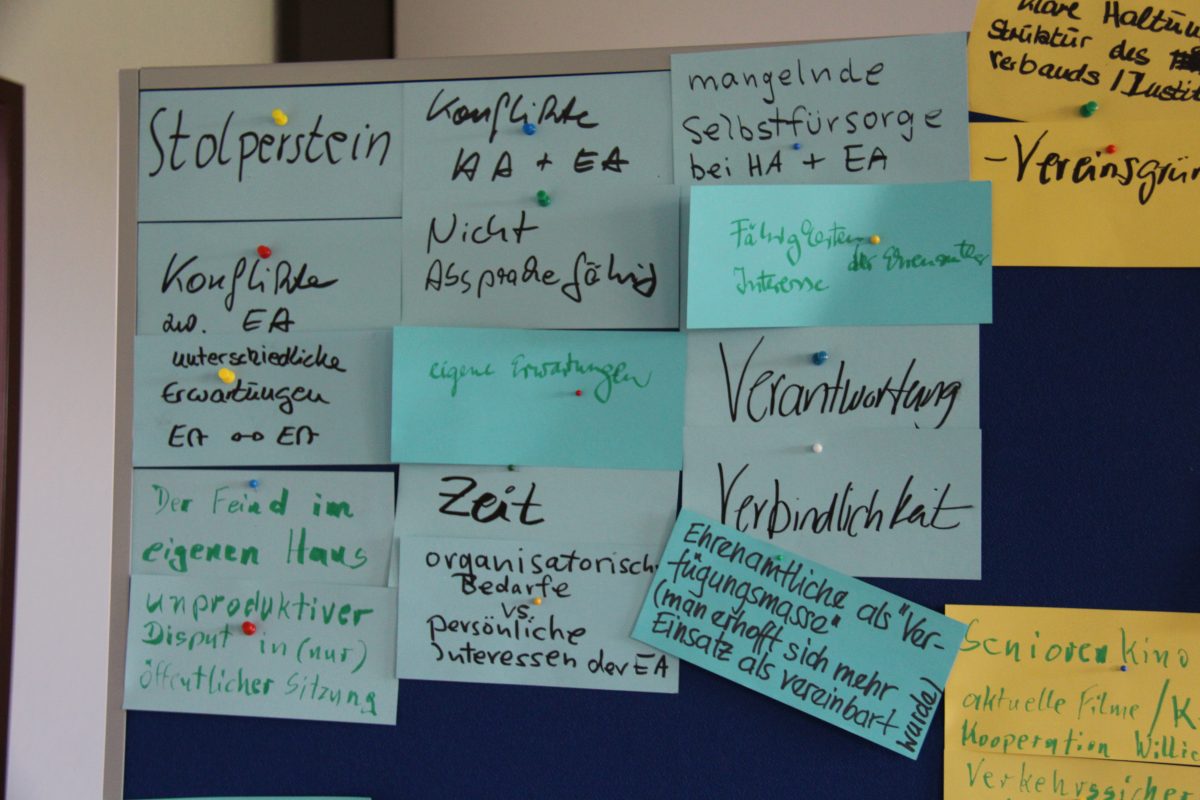 Stolperstein
Konflikte
zw. EA
unterschiedliche
Erwartungen
EA ↔ EA
Der Feind im
eigenen Haus
unproduktiver
Disput in (nur)
öffentlicher Sitzung
Konflikte
HA + EA
Nicht
Absprachefähig
eigene Erwartungen
Zeit
organisatorisch
Bedarfe
vs.
persönliche
Interessen der EA
mangelnde
Selbstfürsorge
bei HA + EA
Fähigkeiten
der Ehrenamtler
Interesse
Verantwortung
Verbindlichkeit
Ehrenamtliche als "Ver-
fügungsmasse"
(man erhofft sich mehr
Einsatz als vereinbart
wurde)
klare Haltun
Struktur des
Verbands / Instit
- Vereinsgrün
Seniorenkino
aktuelle Filme / K
Kooperation Willic
Verkehrssicher